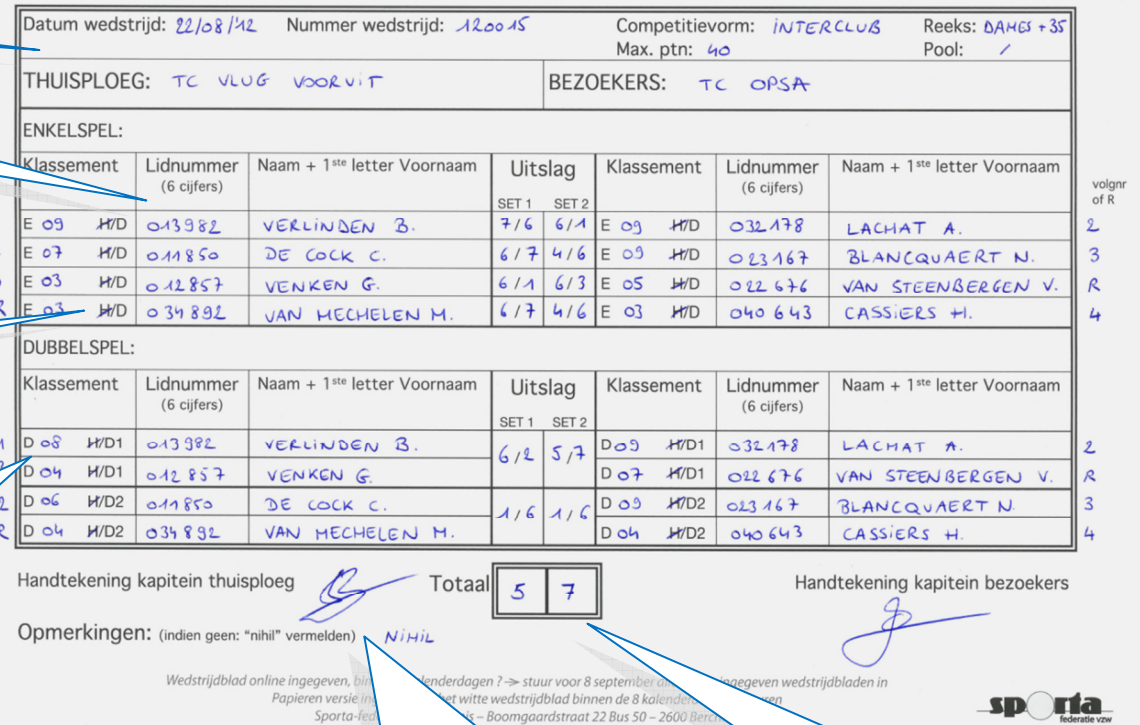 Datum wedstrijd: 22/08/'12 Nummer wedstrijd: 120015 Competitievorm: INTERCLUB Reeks: DAMES +35
Max. ptn: 40 Pool: /
THUISPLOEG: TC VLUG VOORUIT BEZOEKERS: TC OPSA
ENKELSPEL:
Klassement Lidnummer (6 cijfers) Naam + 1ste letter Voornaam Uitslag Klassement Lidnummer (6 cijfers) Naam + 1ste letter Voornaam
SET 1 SET 2 volgnr of R
E 09 H/D 013982 VERLINDEN B. 7/6 6/1 E 09 H/D 032178 LACHAT A. 2
E 07 H/D 011850 DE COCK C. 6/7 4/6 E 09 H/D 023167 BLANCQUAERT N. 3
E 03 H/D 012857 VENKEN G. 6/1 6/3 E 05 H/D 022676 VAN STEENBERGEN V. R
R E 03 H/D 034892 VAN MECHELEN M. 6/7 4/6 E 03 H/D 040643 CASSIERS H. 4
DUBBELSPEL:
Klassement Lidnummer (6 cijfers) Naam + 1ste letter Voornaam Uitslag Klassement Lidnummer (6 cijfers) Naam + 1ste letter Voornaam
SET 1 SET 2
1 D 08 H/D1 013982 VERLINDEN B. 6/2 5/7 D 09 H/D1 032178 LACHAT A. 2
D 04 H/D1 012857 VENKEN G. D 07 H/D1 022676 VAN STEENBERGEN V. R
2 D 06 H/D2 011850 DE COCK C. 1/6 1/6 D 09 H/D2 023167 BLANCQUAERT N. 3
R D 04 H/D2 034892 VAN MECHELEN M. D 04 H/D2 040643 CASSIERS H. 4
Handtekening kapitein thuisploeg Totaal 5 7 Handtekening kapitein bezoekers
Opmerkingen: (indien geen: "nihil" vermelden) NIHIL
Wedstrijdblad online ingegeven, lenderdagen ? → stuur voor 8 september ingegeven wedstrijdbladen in
Papieren versie het witte wedstrijdblad binnen de 8
Sporta-fed is – Boomgaardstraat 22 Bus 50 – 2600
sporta
federatie vzw